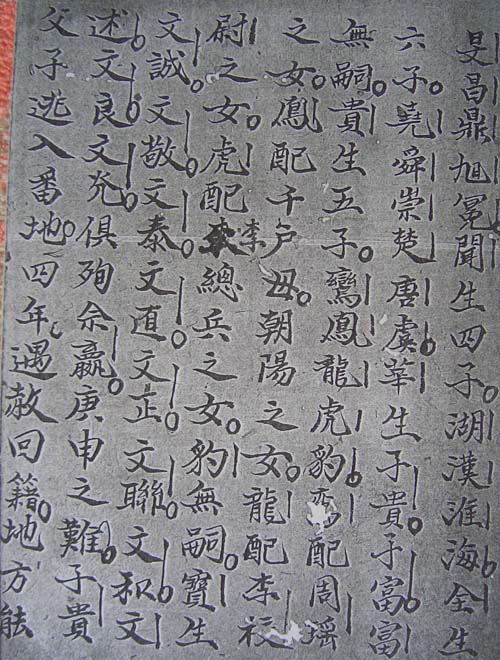 旻昌鼎旭冕聞生四子湖漢淮海全生
六子堯舜崇楚唐虞華生子貴子富富
無嗣貴生五子鸞鳳龍虎豹配周瑶
之女鳳配千户毋朝陽之女龍配李校
尉之女虎配李總兵之女豹無嗣寶生
文誠文敬文泰文直文正文聯文和文
述文良文兖俱殉佘贏庚申之難子貴
父子逃入番地四年遇赦回籍地方能